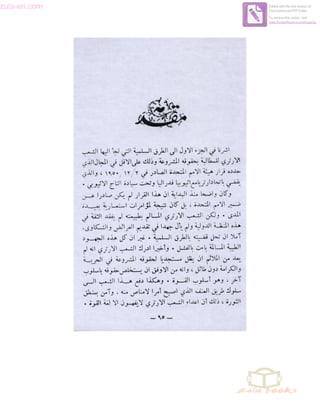 zula-eri.com
مقدمة
اشرنا في الجزء الاول الى الطرق السلمية التي لجأ اليها الشعب
الارتري للمطالبة بحقوقه المشروعة وذلك على الاقل في المجال الذي
حدده قرار هيئة الامم المتحدة الصادر في ٢/١٢/١٩٥٠ ، والذي
يقضي باتحاد ارتريا مع اثيوبيا فدراليا وتحت سيادة التاج الاثيوبي •
وكان واضحا منذ البداية ان هذا القرار لم يكن صادرا عن
ضمير الامم المتحدة ، بل كان نتيجة لمؤامرات استعمارية بعيدة
المدى • ولكن الشعب الارتري المسالم بطبيعته لم يفقد الثقة في
هذه المنظمة الدولية ولم يأل جهدا في تقديم العرائض والشكاوى،
آملا ان تحل قضيته بالطرق السلمية • غير ان كل هذه الجهود
الطيبة المسالمة باءت بالفشل • وأخيرا ادرك الشعب الارتري انه لم
يعد من الملائم ان يظل مستجديا لحقوقه المشروعة في الحرية
والكرامة دون طائل ، وانه من الاوفق ان يستخلص حقوقه باسلوب
آخر ، وهو أسلوب القوة • وهكذا دفع هذا الشعب الى
سلوك طريق العنف الذي اصبح أمرا لامناص منه ، وآمن بمنطق
الثورة ، ذلك أن أعداء الشعب الارتري لايفهمون الا لغة القوة •
— ٩٥ —